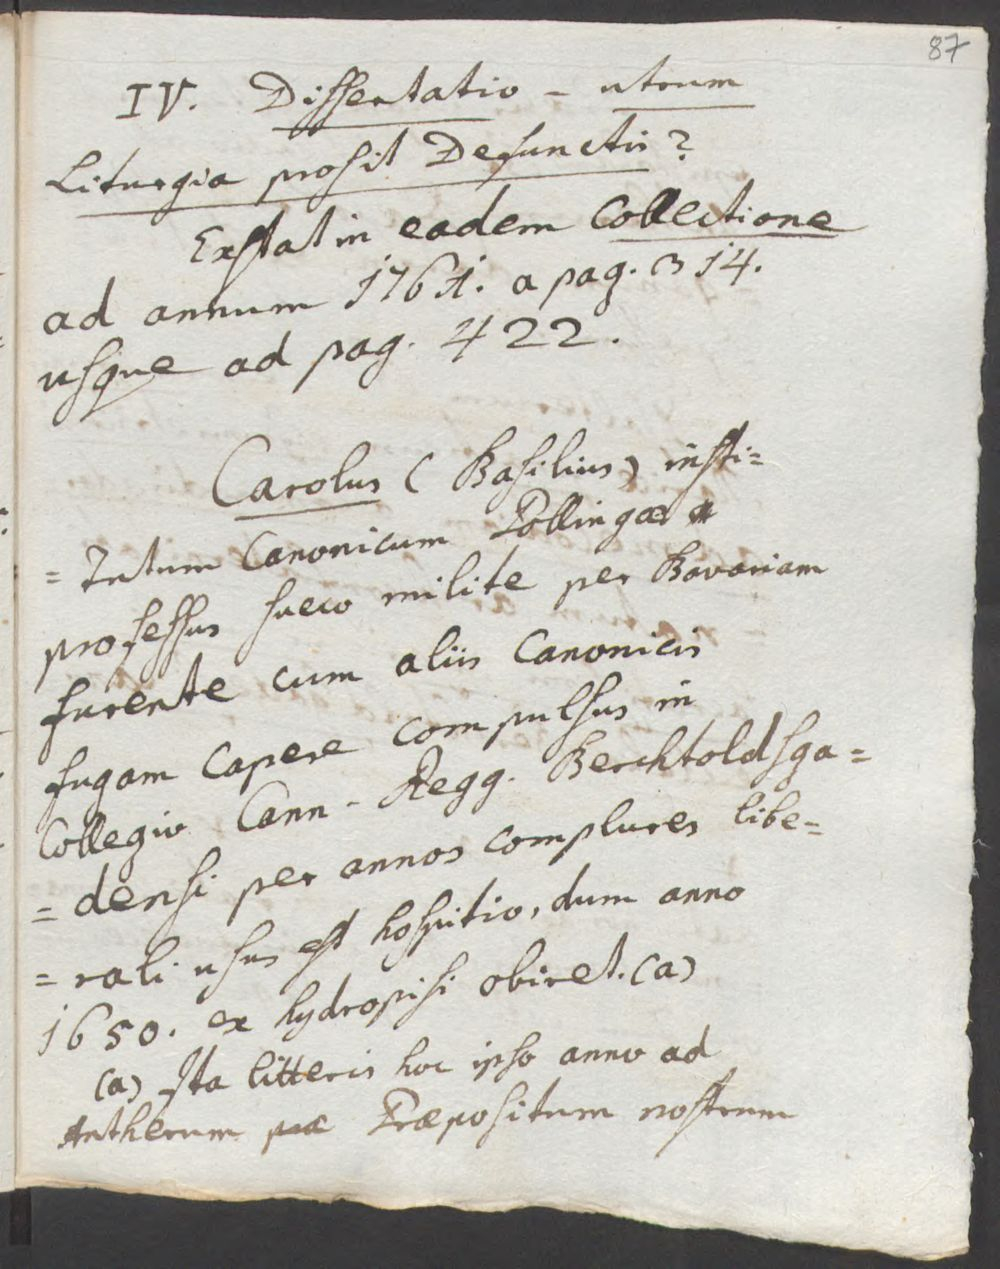 87
IV. Dissertatio - utrum
Liturgia prosit Defunctis?
Exstat in eadem Collectione
ad annum 1761. a pag. 314.
usque ad pag. 422.
Carolus (Basilius) insti=
=tutum Canonicum Pollingae
professus sueco milite per Bavariam
furente cum aliis Canonicis
fugam capere compulsus in
Collegio Cann. Regg. Berchtoldsga=
=densi per annos complures libe=
=rali usus est hospitio, dum anno
1650. ex hydropisi obiret. (a)
(a) Ita litteris hoc ipso anno ad
Antherum Praepositum nostrum